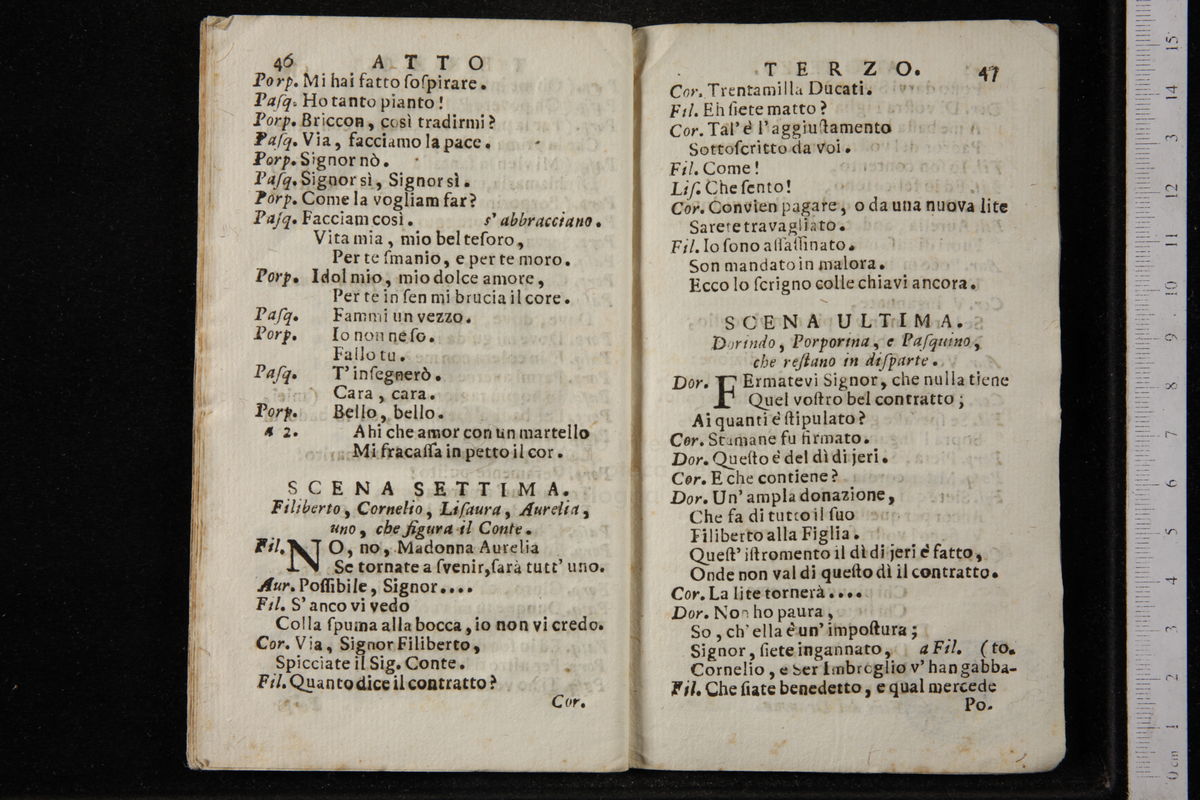 46 ATTO
Porp. Mi hai fatto ſoſpirare.
Paſq. Ho tanto pianto!
Porp. Briccon, così tradirmi?
Paſq. Via, facciamo la pace.
Porp. Signor nò.
Paſq. Signor sì, Signor sì.
Porp. Come la vogliam far?
Paſq. Facciam così. s'abbracciano.
Vita mia, mio bel teſoro,
Per te ſmanio, e per te moro.
Porp. Idol mio, mio dolce amore,
Per te in ſen mi brucia il core.
Paſq. Fammi un vezzo.
Porp. Io non ne ſo.
Fallo tu.
Paſq. T'inſegnerò.
Cara, cara.
Porp. Bello, bello.
a 2. Ahi che amor con un martello
Mi fracaſſa in petto il cor.
SCENA SETTIMA.
Filiberto, Cornelio, Liſaura, Aurelia,
uno, che figura il Conte.
Fil. NO, no, Madonna Aurelia
Se tornate a ſvenir, ſarà tutt'uno.
Aur. Poſſibile, Signor....
Fil. S'anco vi vedo
Colla ſpuma alla bocca, io non vi credo.
Cor. Via, Signor Filiberto,
Spicciate il Sig. Conte.
Fil. Quanto dice il contratto?
Cor.
TERZO. 47
Cor. Trentamilla Ducati.
Fil. Eh ſiete matto?
Cor. Tal'è l'aggiuſtamento
Sottoſcritto da voi.
Fil. Come!
Liſ. Che ſento!
Cor. Convien pagare, o da una nuova lite
Sarete travagliato.
Fil. Io ſono aſſaſſinato.
Son mandato in malora.
Ecco lo ſcrigno colle chiavi ancora.
SCENA ULTIMA.
Dorindo, Porporina, e Paſquino,
che reſtano in diſparte.
Dor. FErmatevi Signor, che nulla tiene
Quel voſtro bel contratto;
Ai quanti è ſtipulato?
Cor. Stamane fu firmato.
Dor. Queſto è del dì di jeri.
Cor. E che contiene?
Dor. Un'ampla donazione,
Che fa di tutto il ſuo
Filiberto alla Figlia.
Queſt'iſtromento il dì di jeri è fatto,
Onde non val di queſto dì il contratto.
Cor. La lite tornerà....
Dor. Non ho paura,
So, ch'ella è un'impoſtura;
Signor, ſiete ingannato, a Fil. (to.
Cornelio, e Ser Imbroglio v'han gabba-
Fil. Che ſiate benedetto, e qual mercede
Po-
0 cm 1 2 3 4 5 6 7 8 9 10 11 12 13 14 15